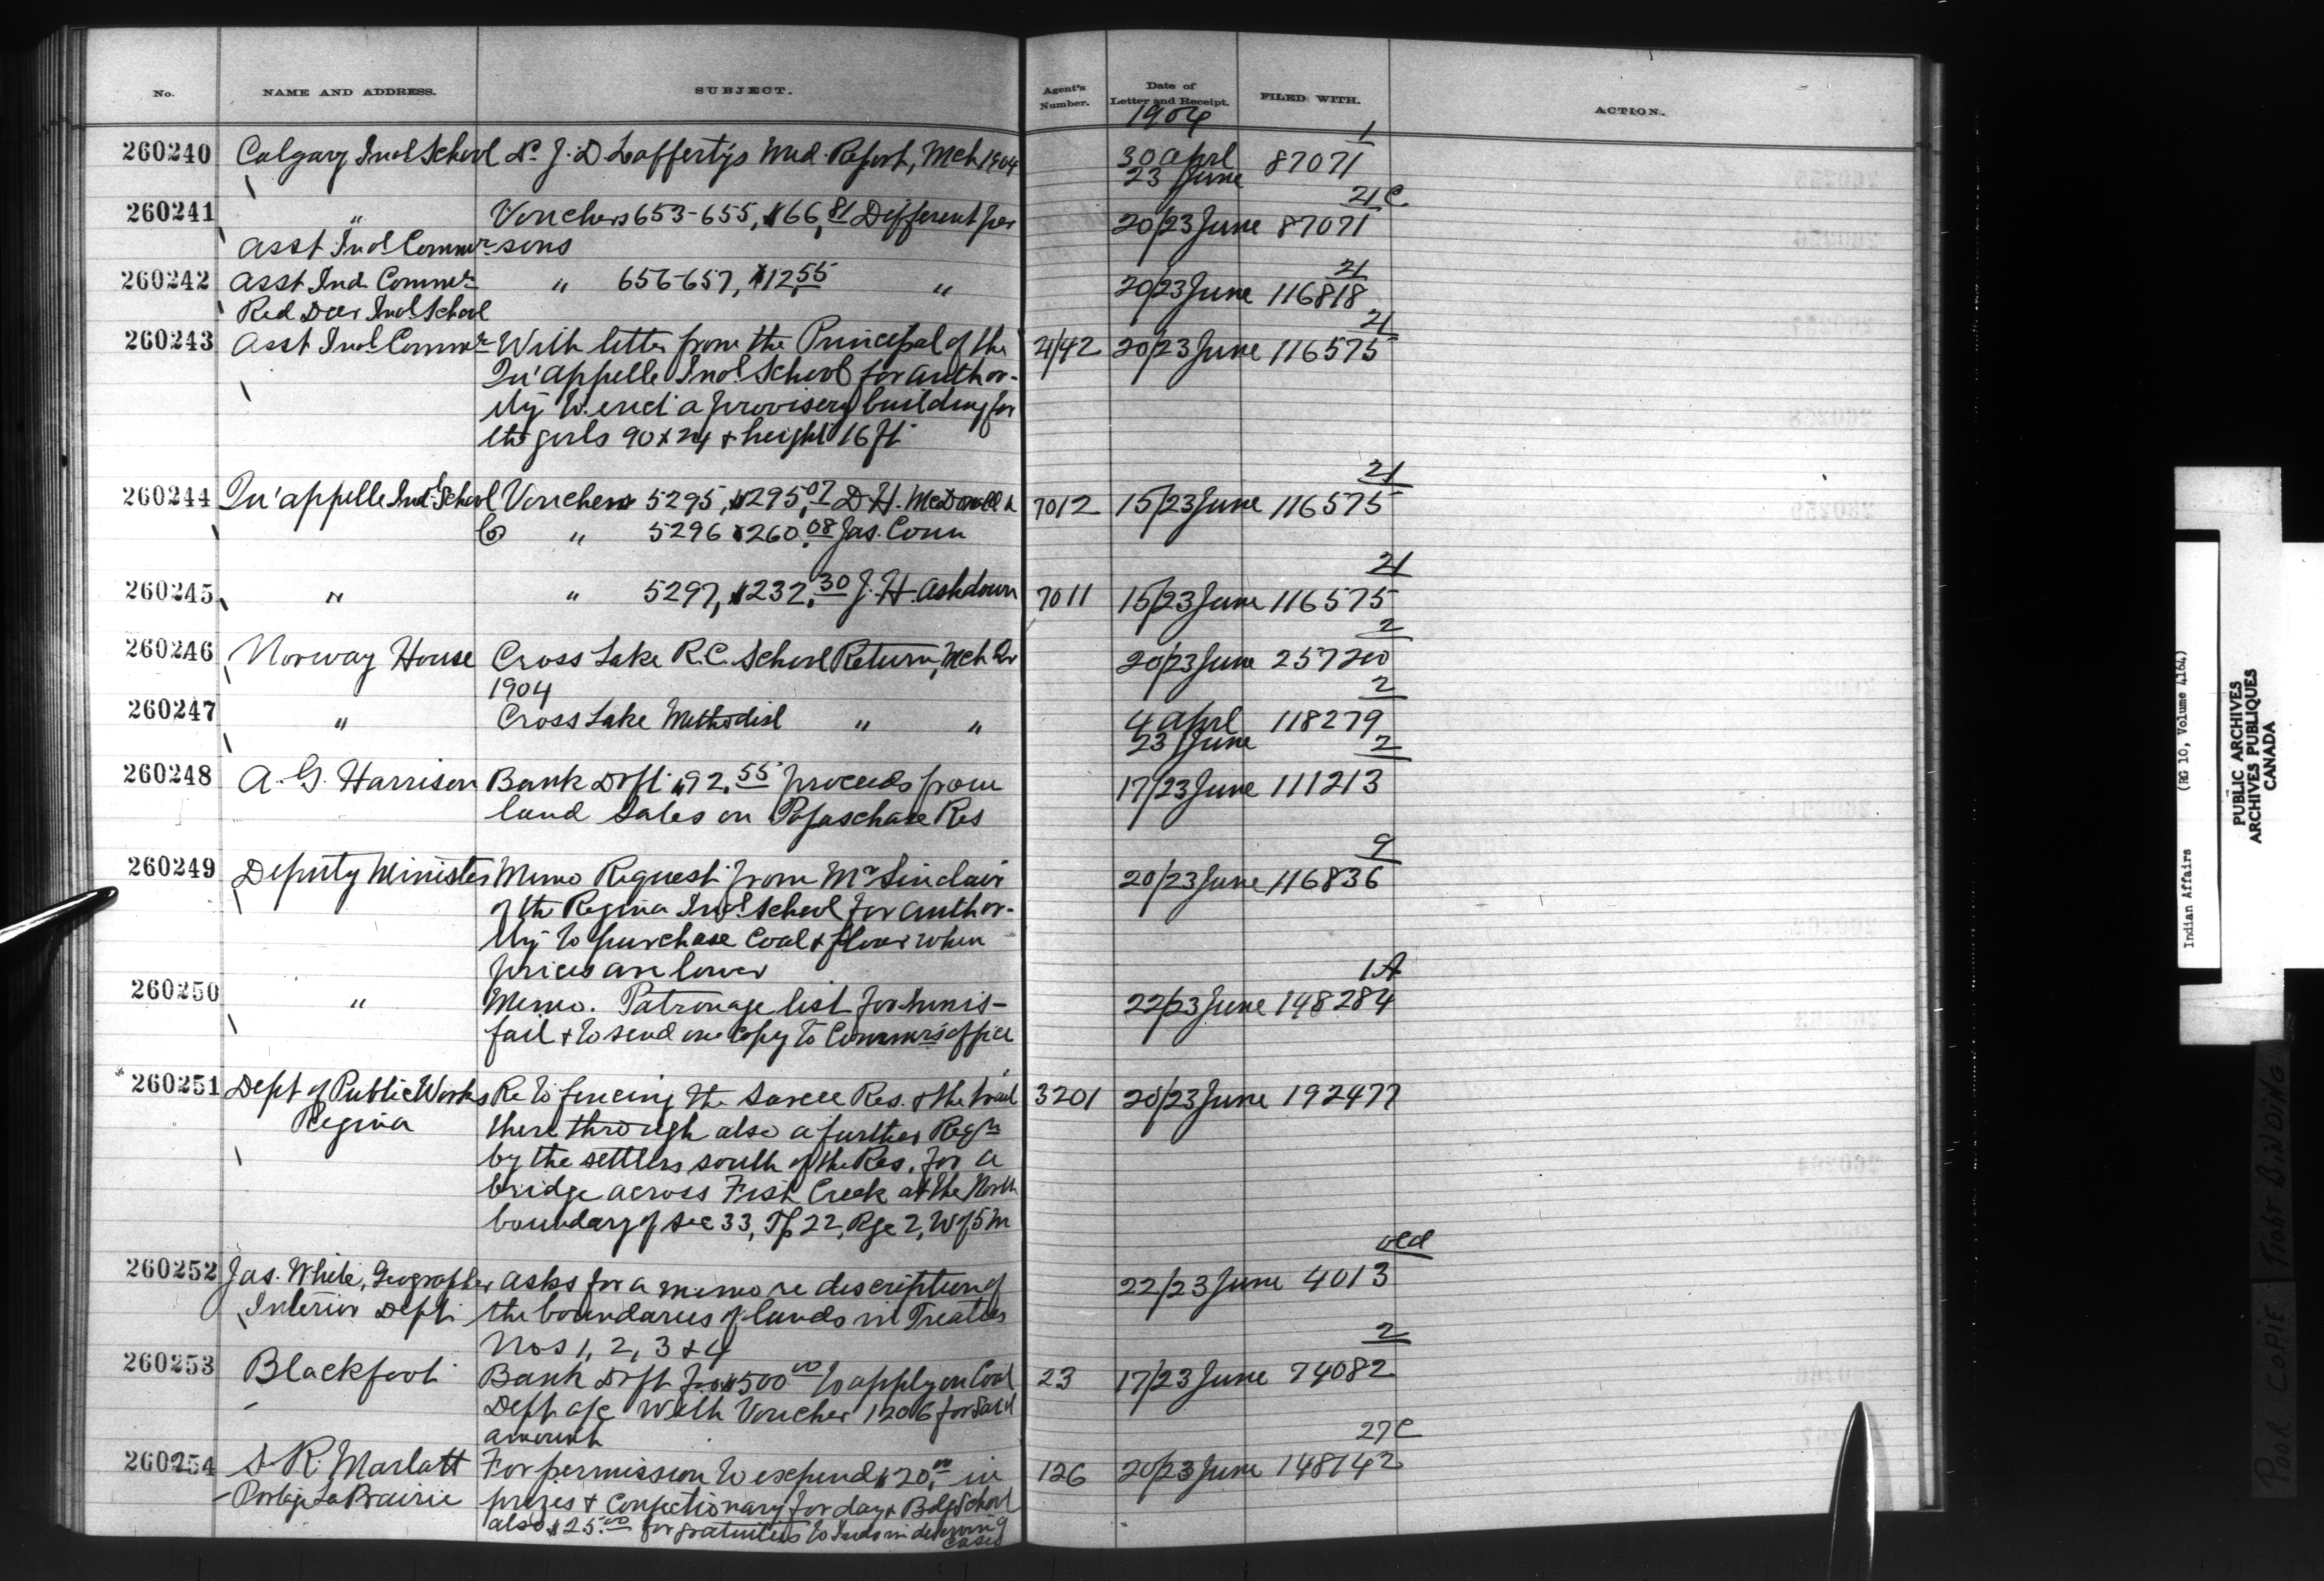 No. NAME AND ADDRESS. SUBJECT. Agent's Number. Date of Letter and Receipt. FILED WITH. ACTION.
1904
1
260240 Calgary Indl School Dr J. D. Lafferty's Med. Report, Mch 1904 30 Aprl 87071
23 June
21 C.
260241 " Vouchers 653-655, $66.81 Different per 20/23 June 87071
Asst. Ind. Commr sons
21
260242 Asst Ind. Commr " 656-657, $12.55 " 20/23 June 116818
Red Deer Indl School
21
260243 Asst Ind. Commr With letter from the Principal of the 2/42 20/23 June 116575
Qu'appelle Indl School for author-
ity to erect a provisery building for
the girls 90 x 24 + height 16 ft
21
260244 Qu'appelle Indl School Vouchers 5295, $295.07 D. H. McDonald & 7012 15/23 June 116575
Co " 5296 $260.08 Jas. Conn
21
260245 " " 5297, $232.30 J. H. Ashdown 7011 15/23 June 116575
2
260246 Norway House Cross Lake R.C. School Return, Mch Qr 20/23 June 257200
1904
2
260247 " Cross Lake Methodist " " 4 Aprl 118279
23 June
2
260248 A. G. Harrison Bank Drft $92.55 proceeds from 17/23 June 111213
land sales on Papaschase Res
9
260249 Deputy Minister Memo Request from Mr Sinclair 20/23 June 116836
of the Regina Indl School for author-
ity to purchase coal + flour when
prices are lower
1A
260250 " Memo. Patronage list for Innis- 22/23 June 148284
fail + to send one copy to Commr's office
260251 Dept of Public Works Re to fencing the Sarcee Res. + the trail 3201 20/23 June 192477
Regina there through also a further Reqn
by the settlers south of the Res. for a
bridge across Fish Creek at the North
boundary of Sec 33, Tp 22, Rge 2, W of 5 M
old
260252 Jas. White, Geographer asks for a memo re description of 22/23 June 4013
Interior Dept. the boundaries of lands in Treaties
Nos 1, 2, 3 + 4
2
260253 Blackfoot Bank Drft for $500.00 to apply on Coal 23 17/23 June 74082
Dept a/c with Voucher 1206 for said
amount
27C
260254 S. R. Marlatt For permission to expend $20.00 in 126 20/23 June 148142
Portage La Prairie prizes + confectionary for day + Bdg School
also $25.00 for gratuities to Inds in deserving
cases
Indian Affairs (RG 10, Volume 4164)
PUBLIC ARCHIVES
ARCHIVES PUBLIQUES
CANADA
POOR COPIE TIGHT BINDING